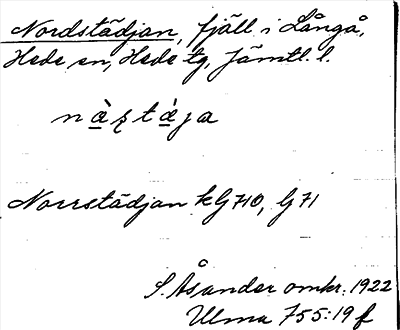 Nordstädjan, fjäll i Långå,
Hede sn, Hede tg, Jämtl. l.
nàʂtä̀ja
Norrstädjan kG 710, G 71
S. Åsander omkr. 1922
Ulma 755:19 f